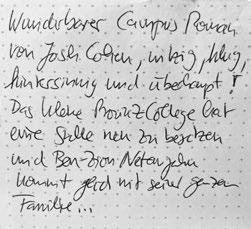 Wunderbarer Campus Roman
von Josh Cohen, witzig, klug,
hintersinnig und überhaupt!
Das kleine Provinz-College hat
eine Stelle neu zu besetzen
und Ben-Zion Netanjahu
kommt gleich mit seiner ganzen
Familie...